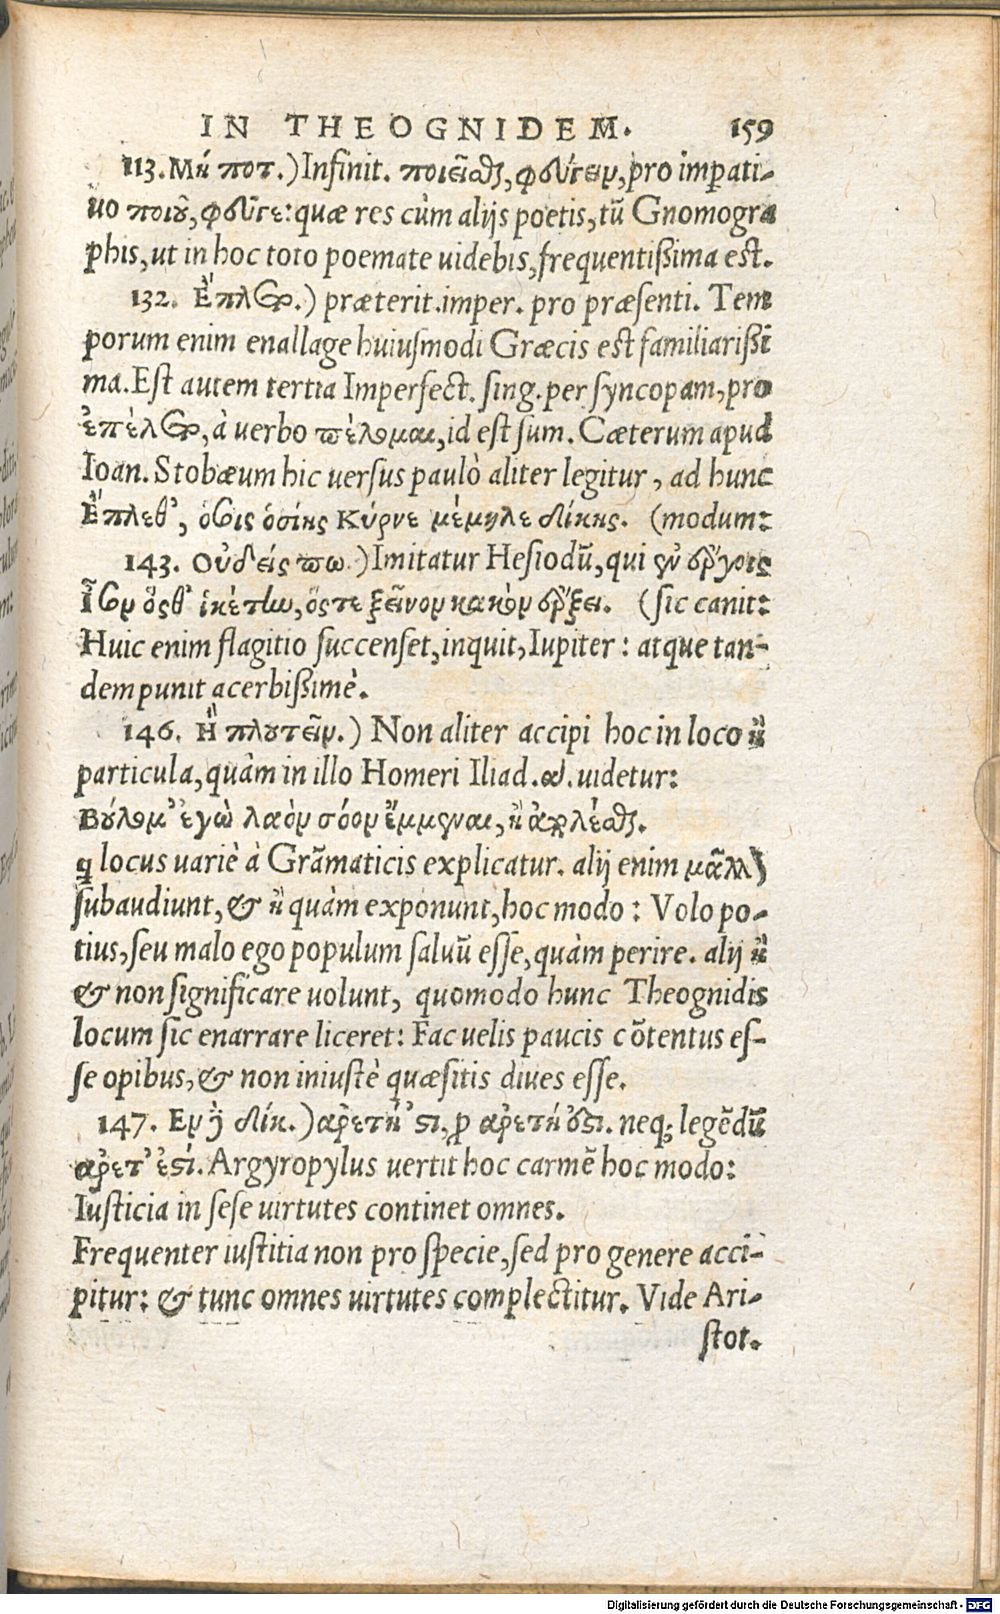 IN THEOGNIDEM. 159
113. Μή ποτ.) Infinit. ποιεῖσθαι, φεύγειν, pro imperati-
uo ποιοῦ, φεῦγε: quæ res cùm alijs poetis, tũ Gnomogra
phis, ut in hoc toto poemate uidebis, frequentißima est.
132. Ἔπλετο.) præterit. imper. pro præsenti. Tem
porum enim enallage huiusmodi Græcis est familiarißi
ma. Est autem tertia Imperfect. sing. per syncopam, pro
ἐπέλετο, à verbo πέλομαι, id est sum. Cæterum apud
Ioan. Stobæum hic uersus paulò aliter legitur, ad hunc
Ἔπλεθ', ὅτοις ὁσίης Κύρνε μέμηλε δίκης. (modum:
143. Οὐδείς πω.) Imitatur Hesiodũ, qui ἐν ἔργοις
Ἶσον ὅς θ' ἱκέτην, ὅς τε ξεῖνον κακὸν ἔρξει. (sic canit:
Huic enim flagitio succenset, inquit, Iupiter: atque tan-
dem punit acerbißimè.
146. Ἢ πλουτεῖν.) Non aliter accipi hoc in loco ἢ
particula, quàm in illo Homeri Iliad. α. uidetur:
Βούλομ' ἐγὼ λαὸν σόον ἔμμεναι, ἢ ἀπολέσθαι.
ꝗ locus uariè à Grãmaticis explicatur. alij enim μᾶλλον
subaudiunt, & ἢ quàm exponunt, hoc modo: Volo po-
tius, seu malo ego populum saluũ esse, quàm perire. alij ἢ
& non significare uolunt, quomodo hunc Theognidis
locum sic enarrare liceret: Fac uelis paucis cõtentus es-
se opibus, & non iniustè quæsitis diues esse.
147. Ἐν δὲ δικ.) ἀρετή 'στι, ꝓ ἀρετή ἐστι. neq; legẽdũ
ἀρετ' ἐστί. Argyropylus uertit hoc carmẽ hoc modo:
Iusticia in sese uirtutes continet omnes.
Frequenter iustitia non pro specie, sed pro genere acci-
pitur: & tunc omnes uirtutes complectitur. Vide Ari-
stot.
Digitalisierung gefördert durch die Deutsche Forschungsgemeinschaft - DFG